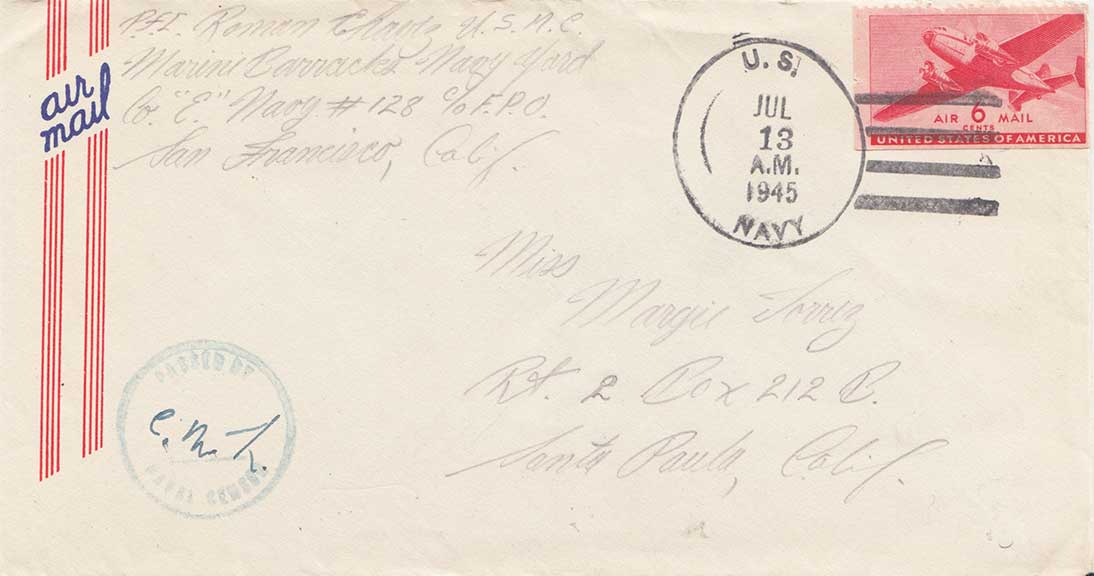 Roman U.S.M.C.
Marine Barracks Navy Yard
Co. "E" Navy # 128 c/o F.P.O.
San Francisco, Calif.
air
mail
U.S.
JUL
13
A.M.
1945
NAVY
AIR 6 MAIL
CENTS
UNITED STATES OF AMERICA
Miss
Margie Torrez
Rt. 2 Box 212 B.
Santa Paula, Calif.
PASSED BY
NAVAL CENSOR